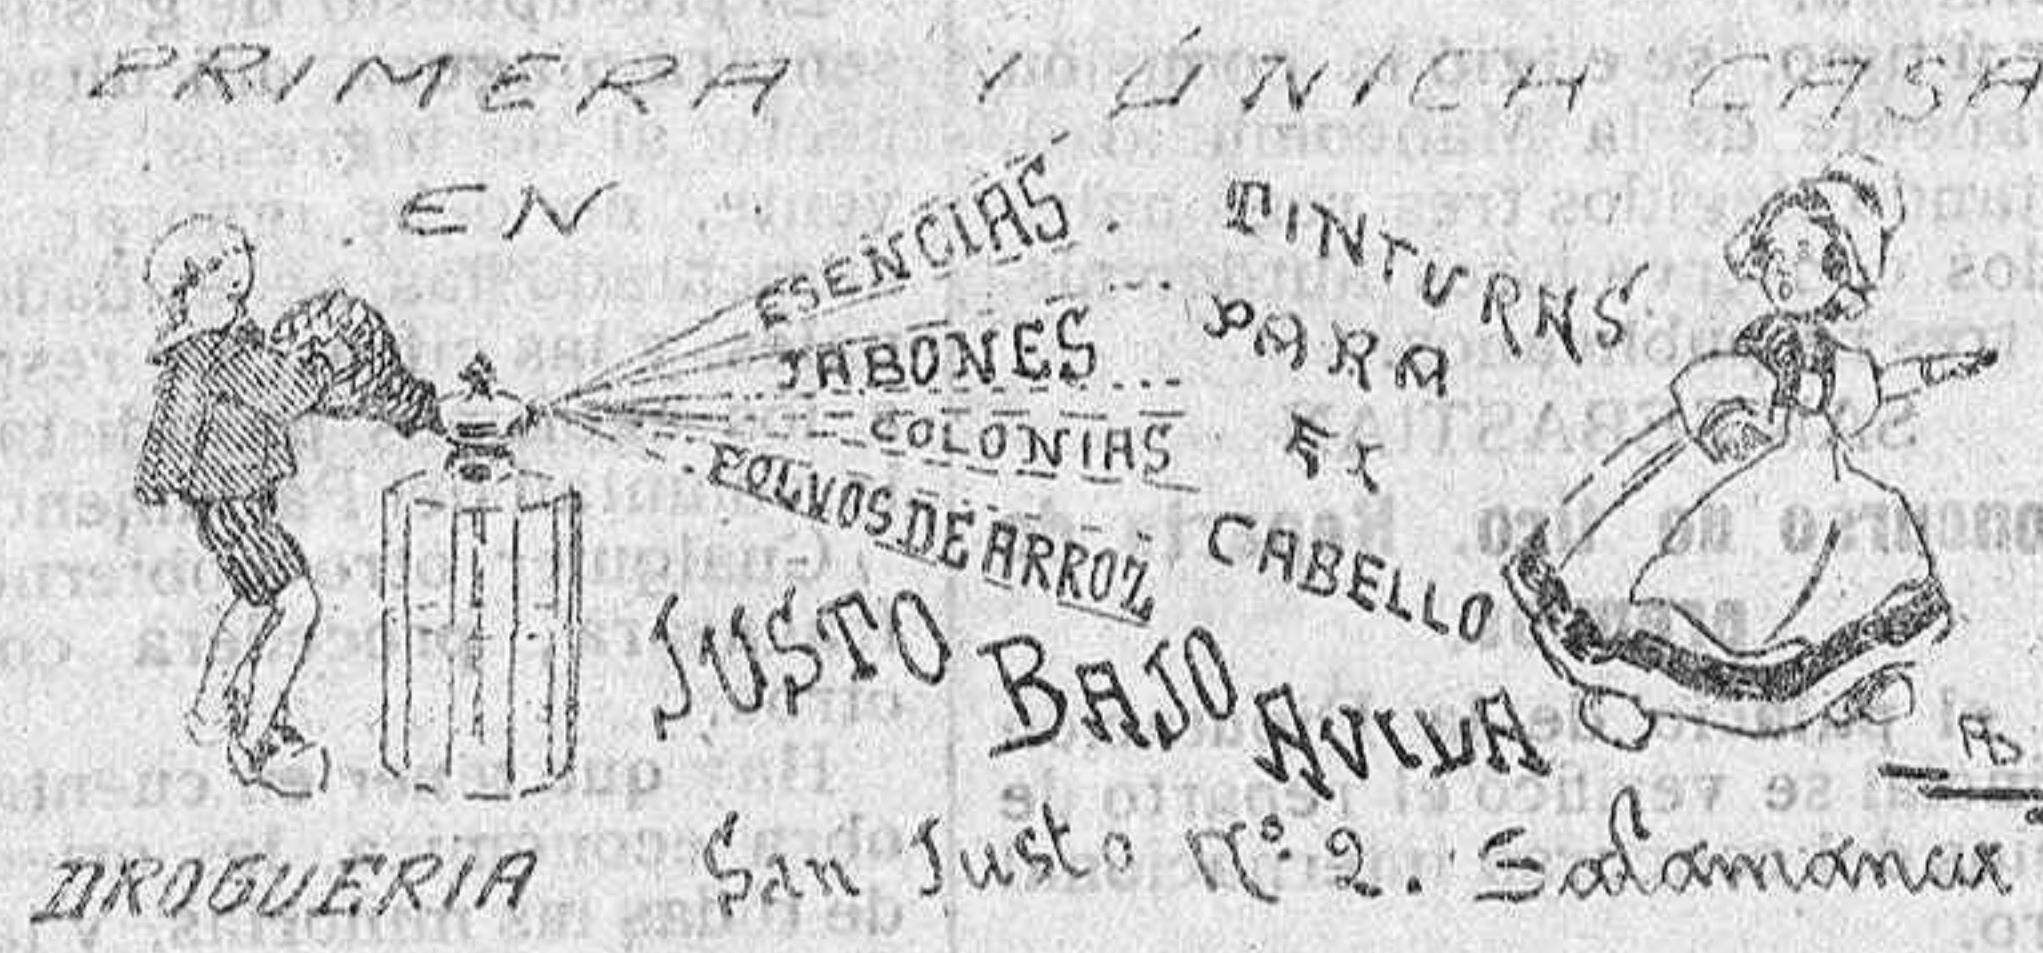 PRIMERA Y ÚNICA CASA
EN
ESENCIAS
JABONES
COLONIAS
POLVOS DE ARROZ
TINTURAS
PARA
EL
CABELLO
JUSTO BAJO AVILA
DROGUERIA
San Justo Nº 2. Salamanca